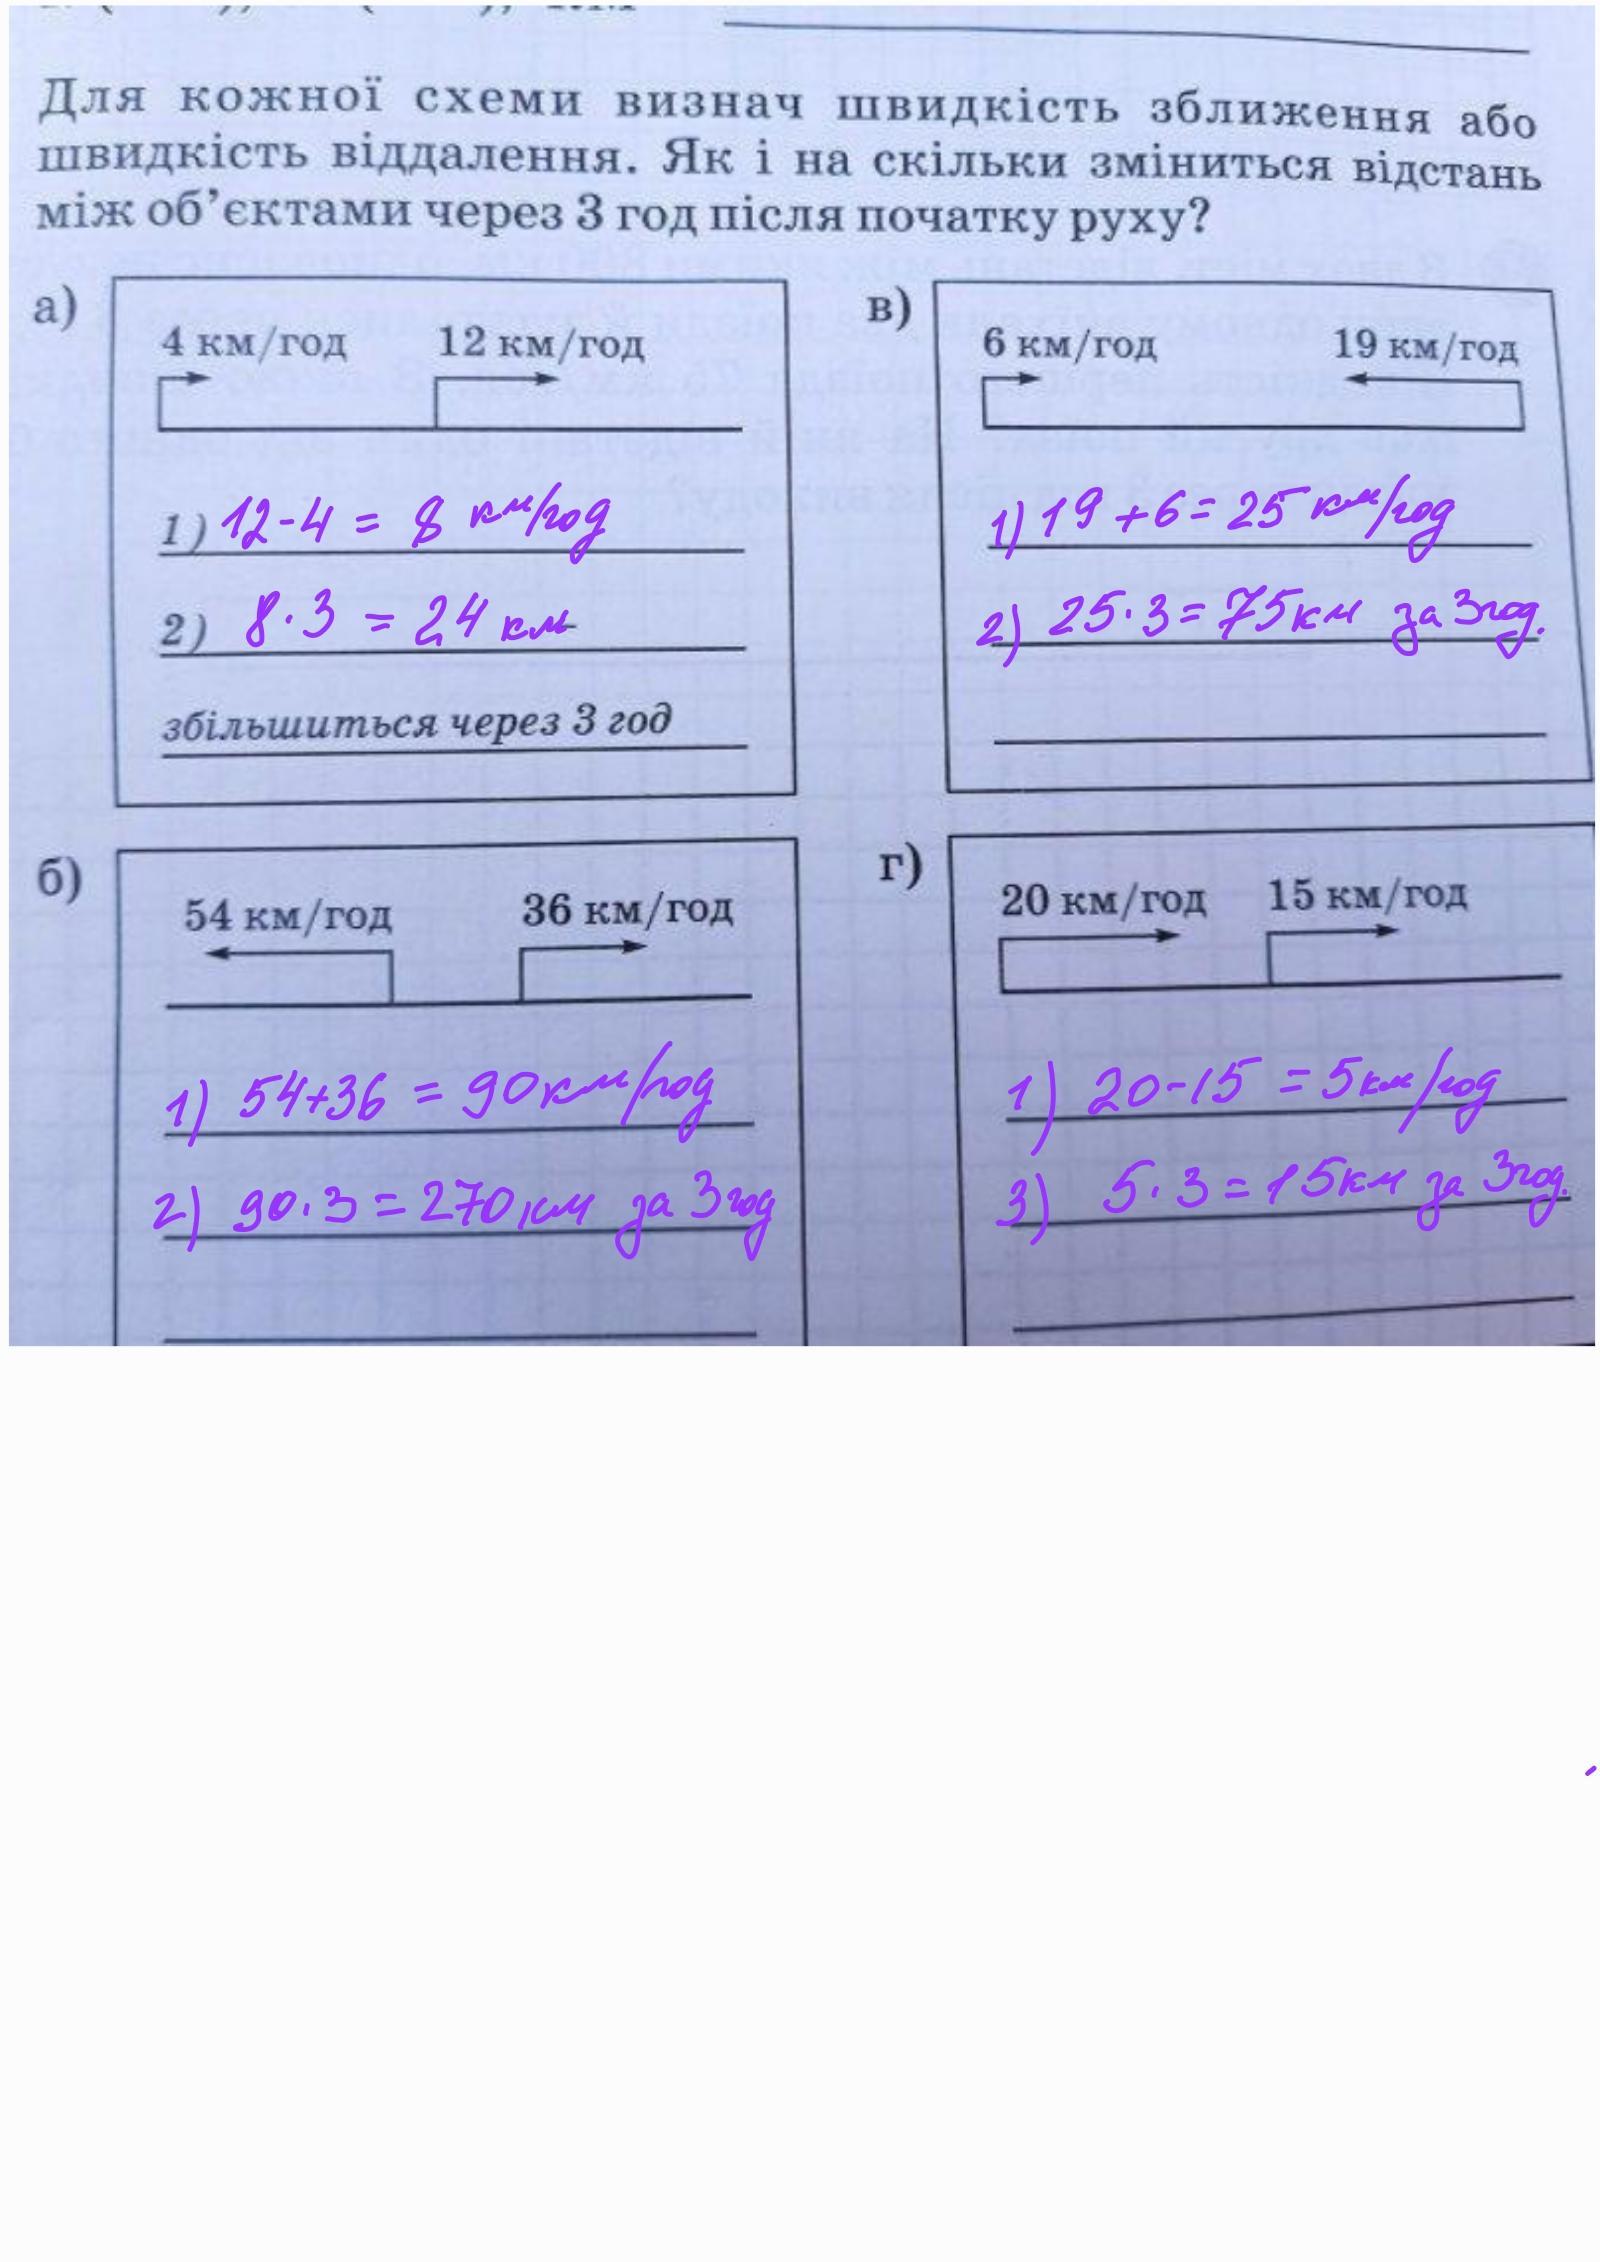 Для кожної схеми визнач швидкість зближення або
швидкість віддалення. Як і на скільки зміниться відстань
між об’єктами через 3 год після початку руху?
а)
4 км/год 12 км/год
1) 12-4 = 8 км/год
2) 8·3 = 24 км
збільшиться через 3 год
в)
6 км/год 19 км/год
1) 19+6=25 км/год
2) 25·3=75км за 3год.
б)
54 км/год 36 км/год
1) 54+36 = 90км/год
2) 90·3=270км за 3год
г)
20 км/год 15 км/год
1) 20-15 =5км/год
3) 5·3=15км за 3год.